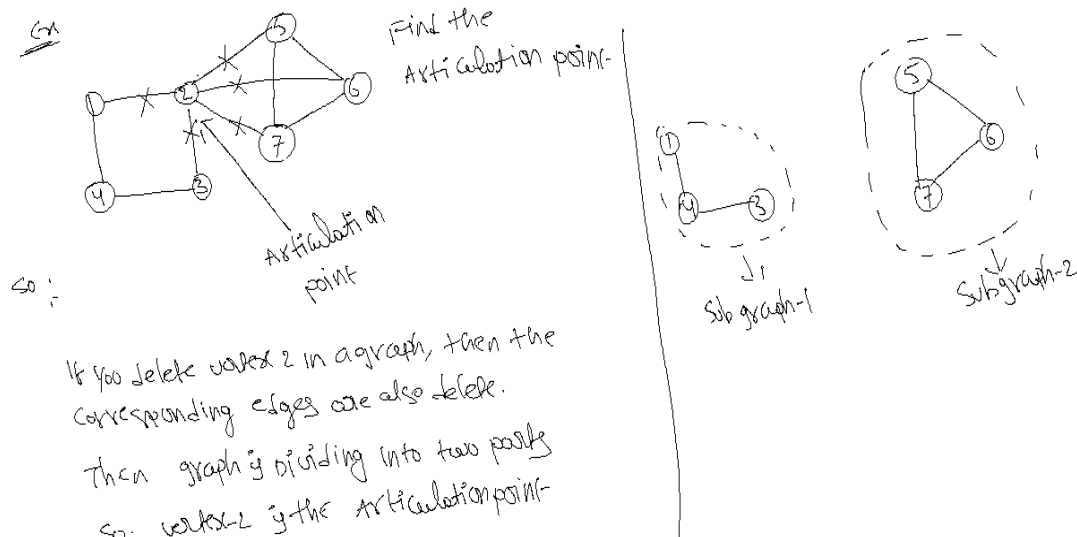 Ex
Find the
Articulation point
5
1
2
6
7
4
3
Articulation
point
So :-
If you delete vertex 2 in a graph, then the
corresponding edges are also delete.
Then graph is Dividing into two parts
So vertex-2 is the Articulation point
1
4
3
Subgraph-1
5
6
7
Subgraph-2